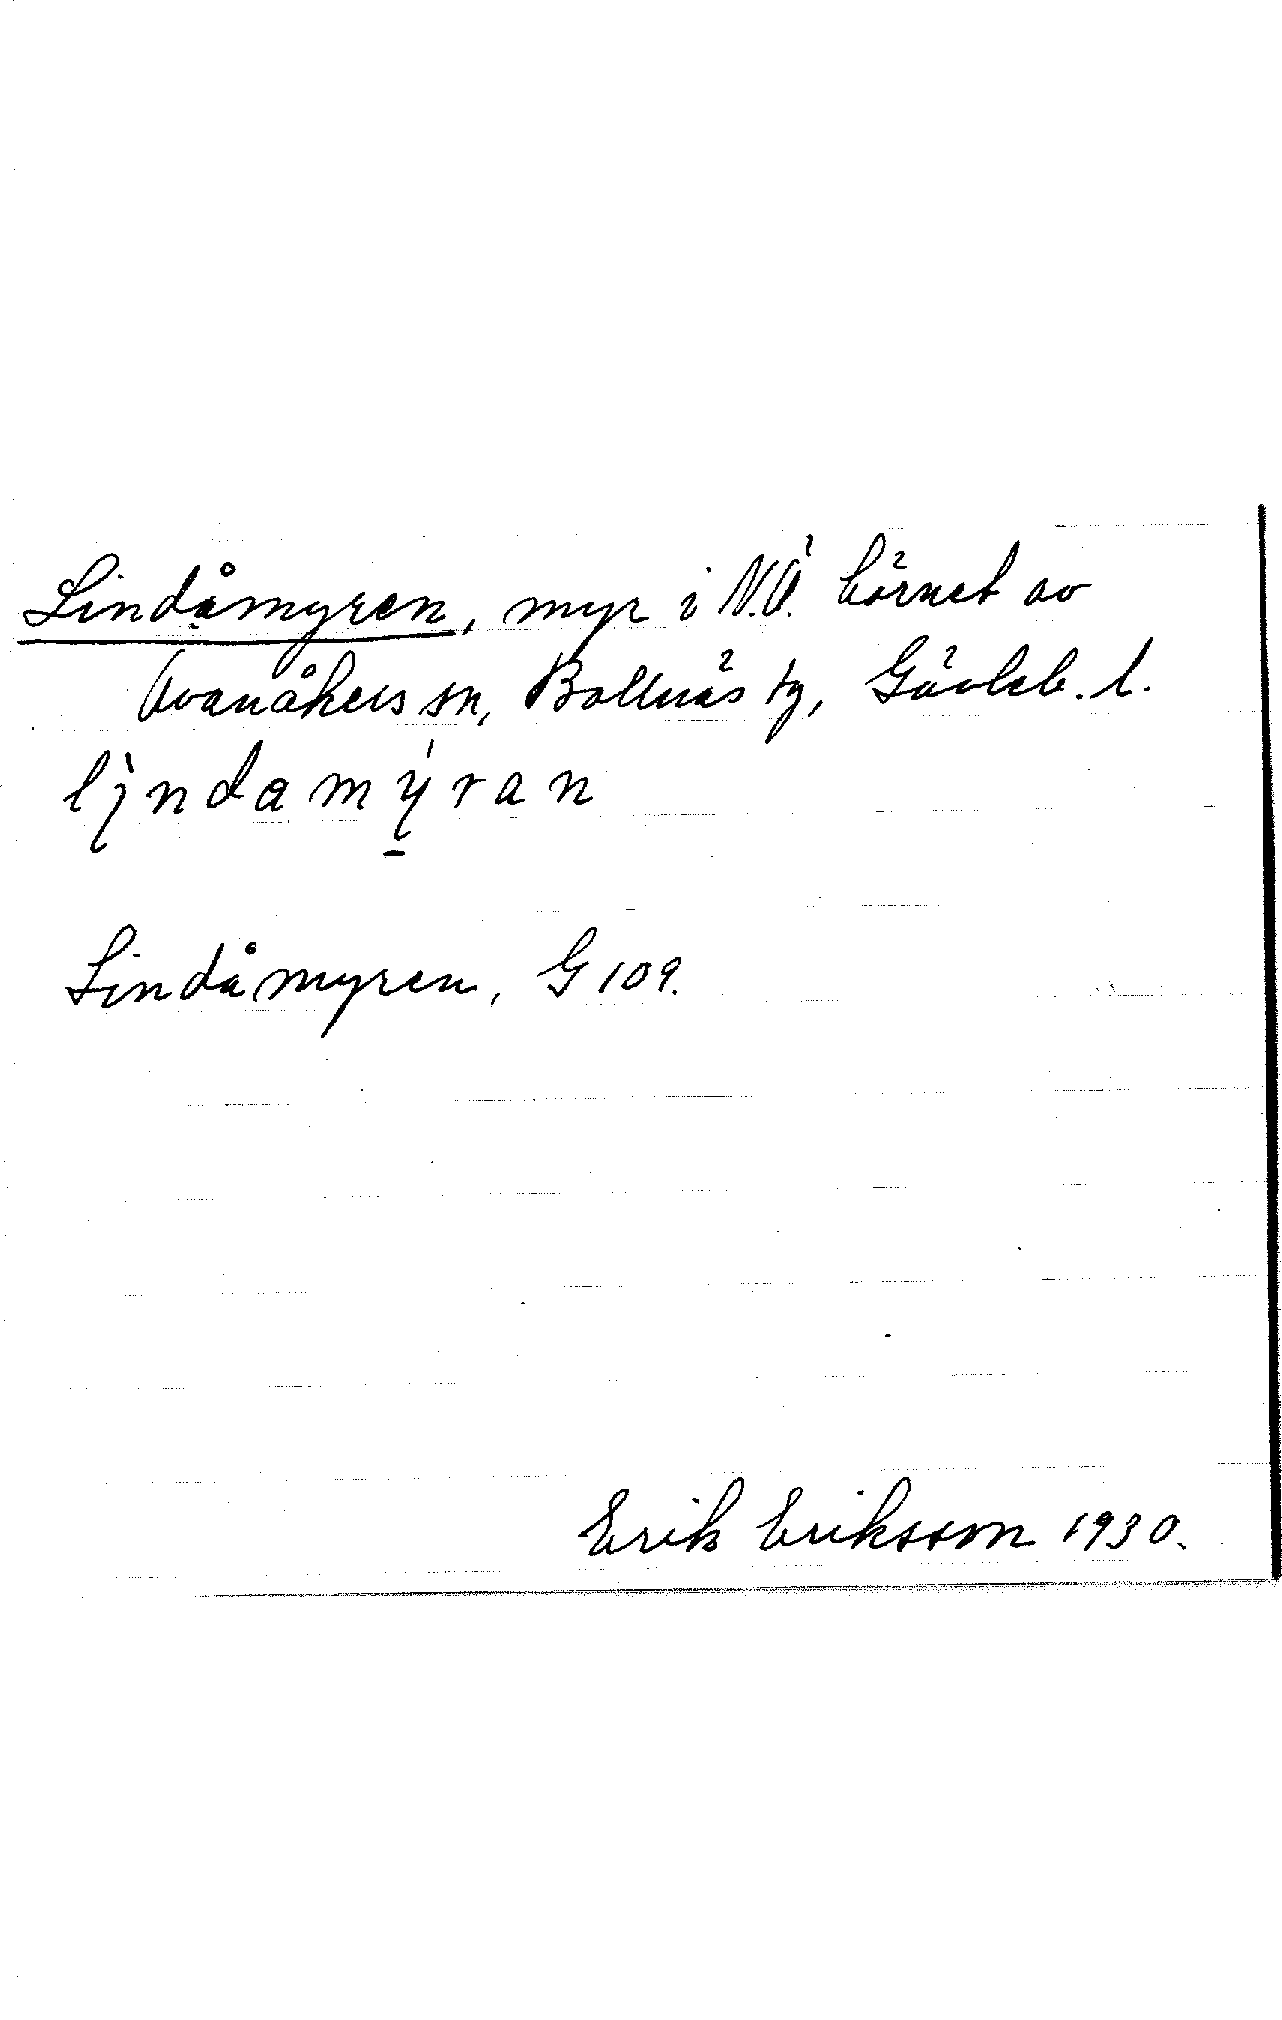 Lindåmyren, myr i N.Ö. hörnet av
Ovanåkers sn, Bollnäs tg, Gävleb. l.
lindamy̱ran
Lindåmyren, G 109.
Erik Eriksson 1930.